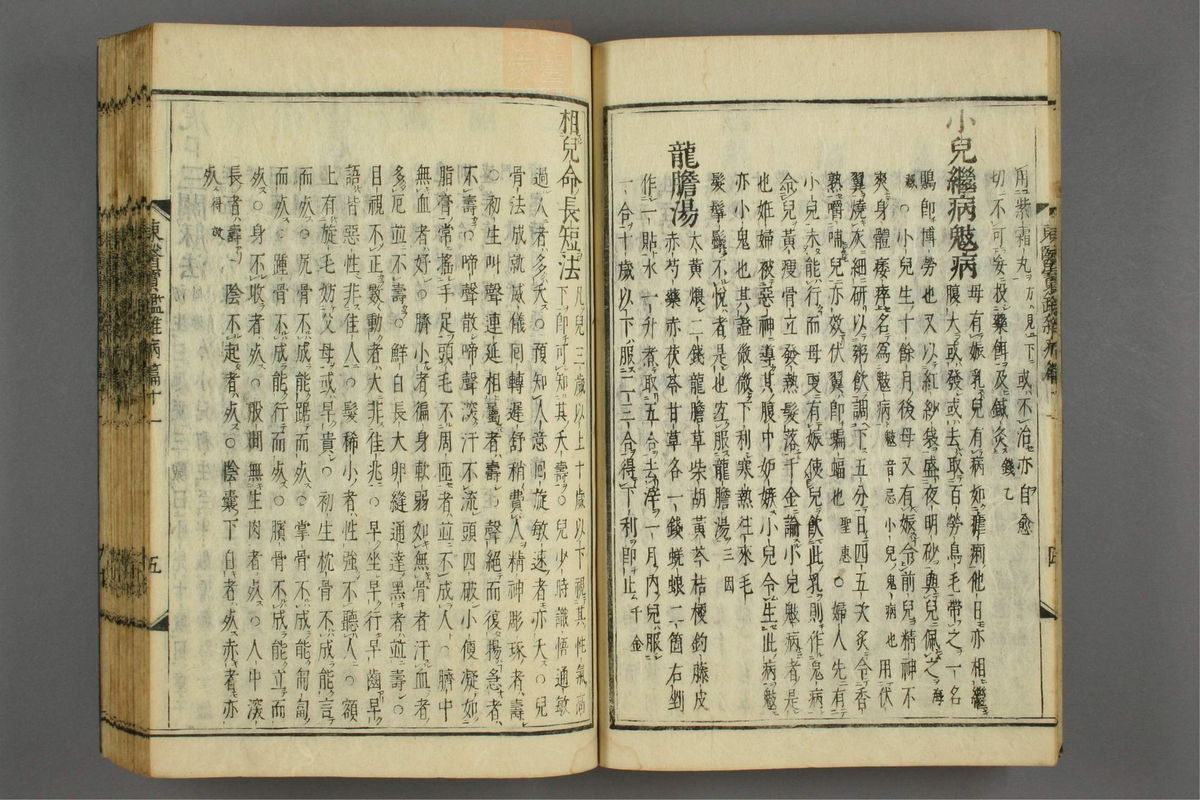 用紫霜丸方見下或不治亦自愈
切不可妄投藥餌及鍼灸錢乙
小兒繼病魃病
母有娠乳兒有病如瘧痢他日亦相繼
腹大或發或去取百勞鳥毛帶之一名
鵙卽博勞也又以紅紗袋盛夜明砂與兒佩之海
藏○小兒生十餘月後母又有娠令前兒精神不
爽身體痿瘁名爲魃病魃音忌小兒鬼病也用伏
翼燒灰細研以粥飮調下五分日四五次炙令香
熟嚼哺兒亦效伏翼卽蝙蝠也聖惠○婦人先有
小兒未能行而母更有娠使兒飮此乳則作鬼病
令兒黃瘦骨立發熱髮落千金論小兒魃病者是
也妊婦被惡神導其腹中妬嫉小兒令生此病魃
亦小鬼也其證微微下利寒熱往來毛
髮鬡鬢不悅者是也宜服龍膽湯三因
龍膽湯
大黃煨二錢龍膽草柴胡黃芩桔梗釣藤皮
赤芍藥赤茯苓甘草各一錢蜣蜋二箇右剉
作一貼水一升煮取五合去滓一月內兒服
一合十歲以下服二三合得下利卽止千金
相兒命長短法
凡兒三歲以上十歲以下視其性氣高
下卽可知其夭壽○兒少時識悟通敏
過人者多夭○預知人意回旋敏速者亦夭○兒
骨法成就威儀回轉遲舒稍費人精神彫琢者壽
○初生叫聲連延相屬者壽○聲絕而復揚急者
不壽○啼聲散啼聲深汗不流頭四破小便凝如
脂膏常搖手足頭毛不周匝者並不成人○臍中
無血者好○臍小者徧身軟弱如無骨者汗血者
多厄並不壽○鮮白長大卵縫通達黑者並壽○
目視不正數動者大非佳兆○早坐早行早齒早
語皆惡性非佳人○髮稀小者性強不聽人○額
上有旋毛妨父母或早貴○初生枕骨不成能言
而死○尻骨不成能踞而死○掌骨不成能匍匐
而死○踵骨不成能行而死○臏骨不成能立而
死○身不收者死○股間無生肉者死○人中深
長者壽○陰不起者死○陰囊下白者死赤者亦
死得效
東醫寶鑑雜病篇十一
四
東醫寶鑑雜病篇十一
五